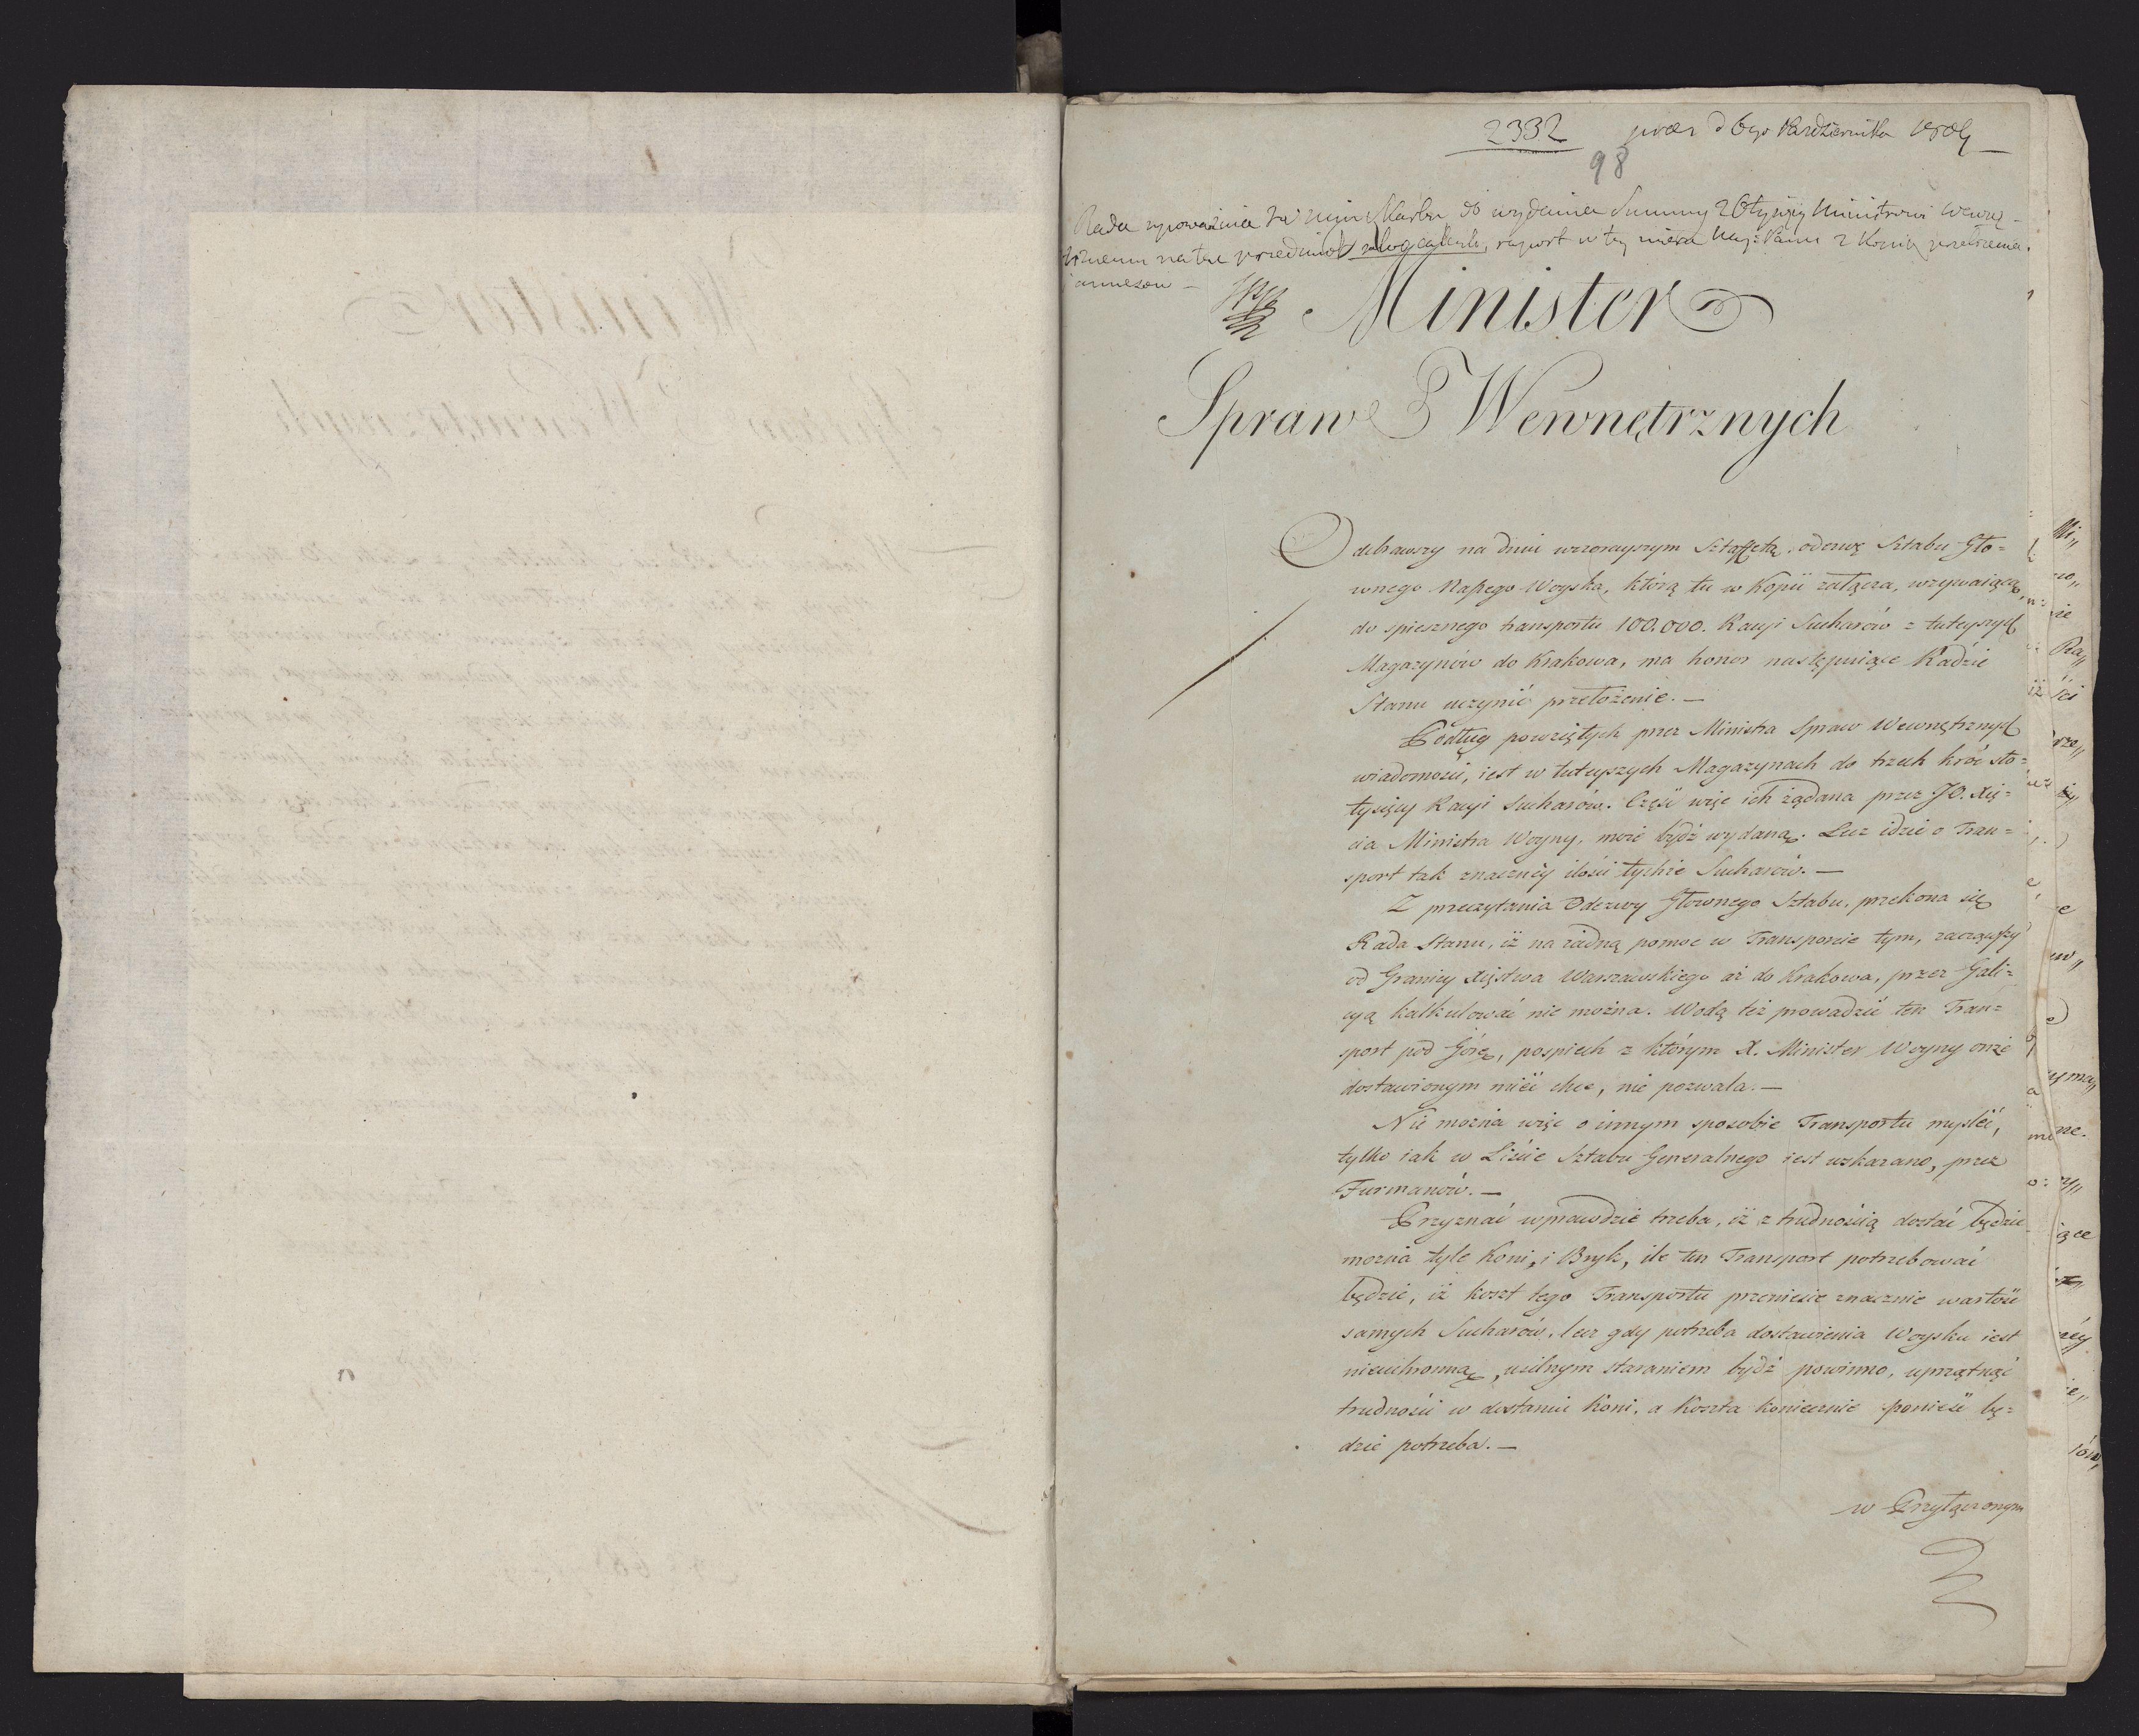 2332 prez d 6go Października 1809
98
Rada upoważnia do wydania Summy Ministrowi Wewnę-
trznemu na ten przedmiot, raport w tey mierze Nayj: Panu z Kopią przełożenia
Minister
Spraw Wewnętrznych
Odebrawszy na dniu wczorayszym Sztaffetą, odezwę Sztabu Gło=
wnego Naszego Woyska, którą tu w Kopii załącza, wzywaiącą,
do spiesznego transportu 100.000. Racyi Sucharów z tuteyszych
Magazynów do Krakowa, ma honor następuiące Radzie
Stanu uczynić przełożenie. —
Podług powziętych przez Ministra Spraw Wewnętrznych
wiadomości, iest w tuteyszych Magazynach do trzech króć sto=
tysięcy Racyi Sucharów. Część więc ich żądana przez JO. Xię=
cia Ministra Woyny, może bydź wydaną. Lecz idzie o Tran=
sport tak znaczney ilości tychże Sucharów. —
Z przeczytania Odezwy Głownego Sztabu, przekona się
Rada Stanu, iż na żadną pomoc w Transporcie tym, zacząwszy
od Granicy Xięstwa Warszawskiego aż do Krakowa, przez Gali=
cyą kalkulować nie można. Wodą też prowadzić ten Tran=
sport pod Górę, pospiech z którym X. Minister Woyny onże
dostawionym mieć chce, nie pozwala. —
Nie można więc o innym sposobie Transportu myślić,
tylko iak w Liście Sztabu Generalnego iest wskazano, przez
Furmanów. —
Przyznać wprawdzie trzeba, iż z trudnością dostać będzie
można tyle Koni, i Bryk, ile ten Transport potrzebować
będzie, iż koszt tego Transportu przeniesie znacznie wartość
samych Sucharów, lecz gdy potrzeba dostawienia Woysku iest
nieuchronną, usilnym staraniem bydź powinno, uprzątnąć
trudności w dostaniu Koni, a Koszta koniecznie ponieść bę=
dzie potrzeba. —
w Przyłączonym